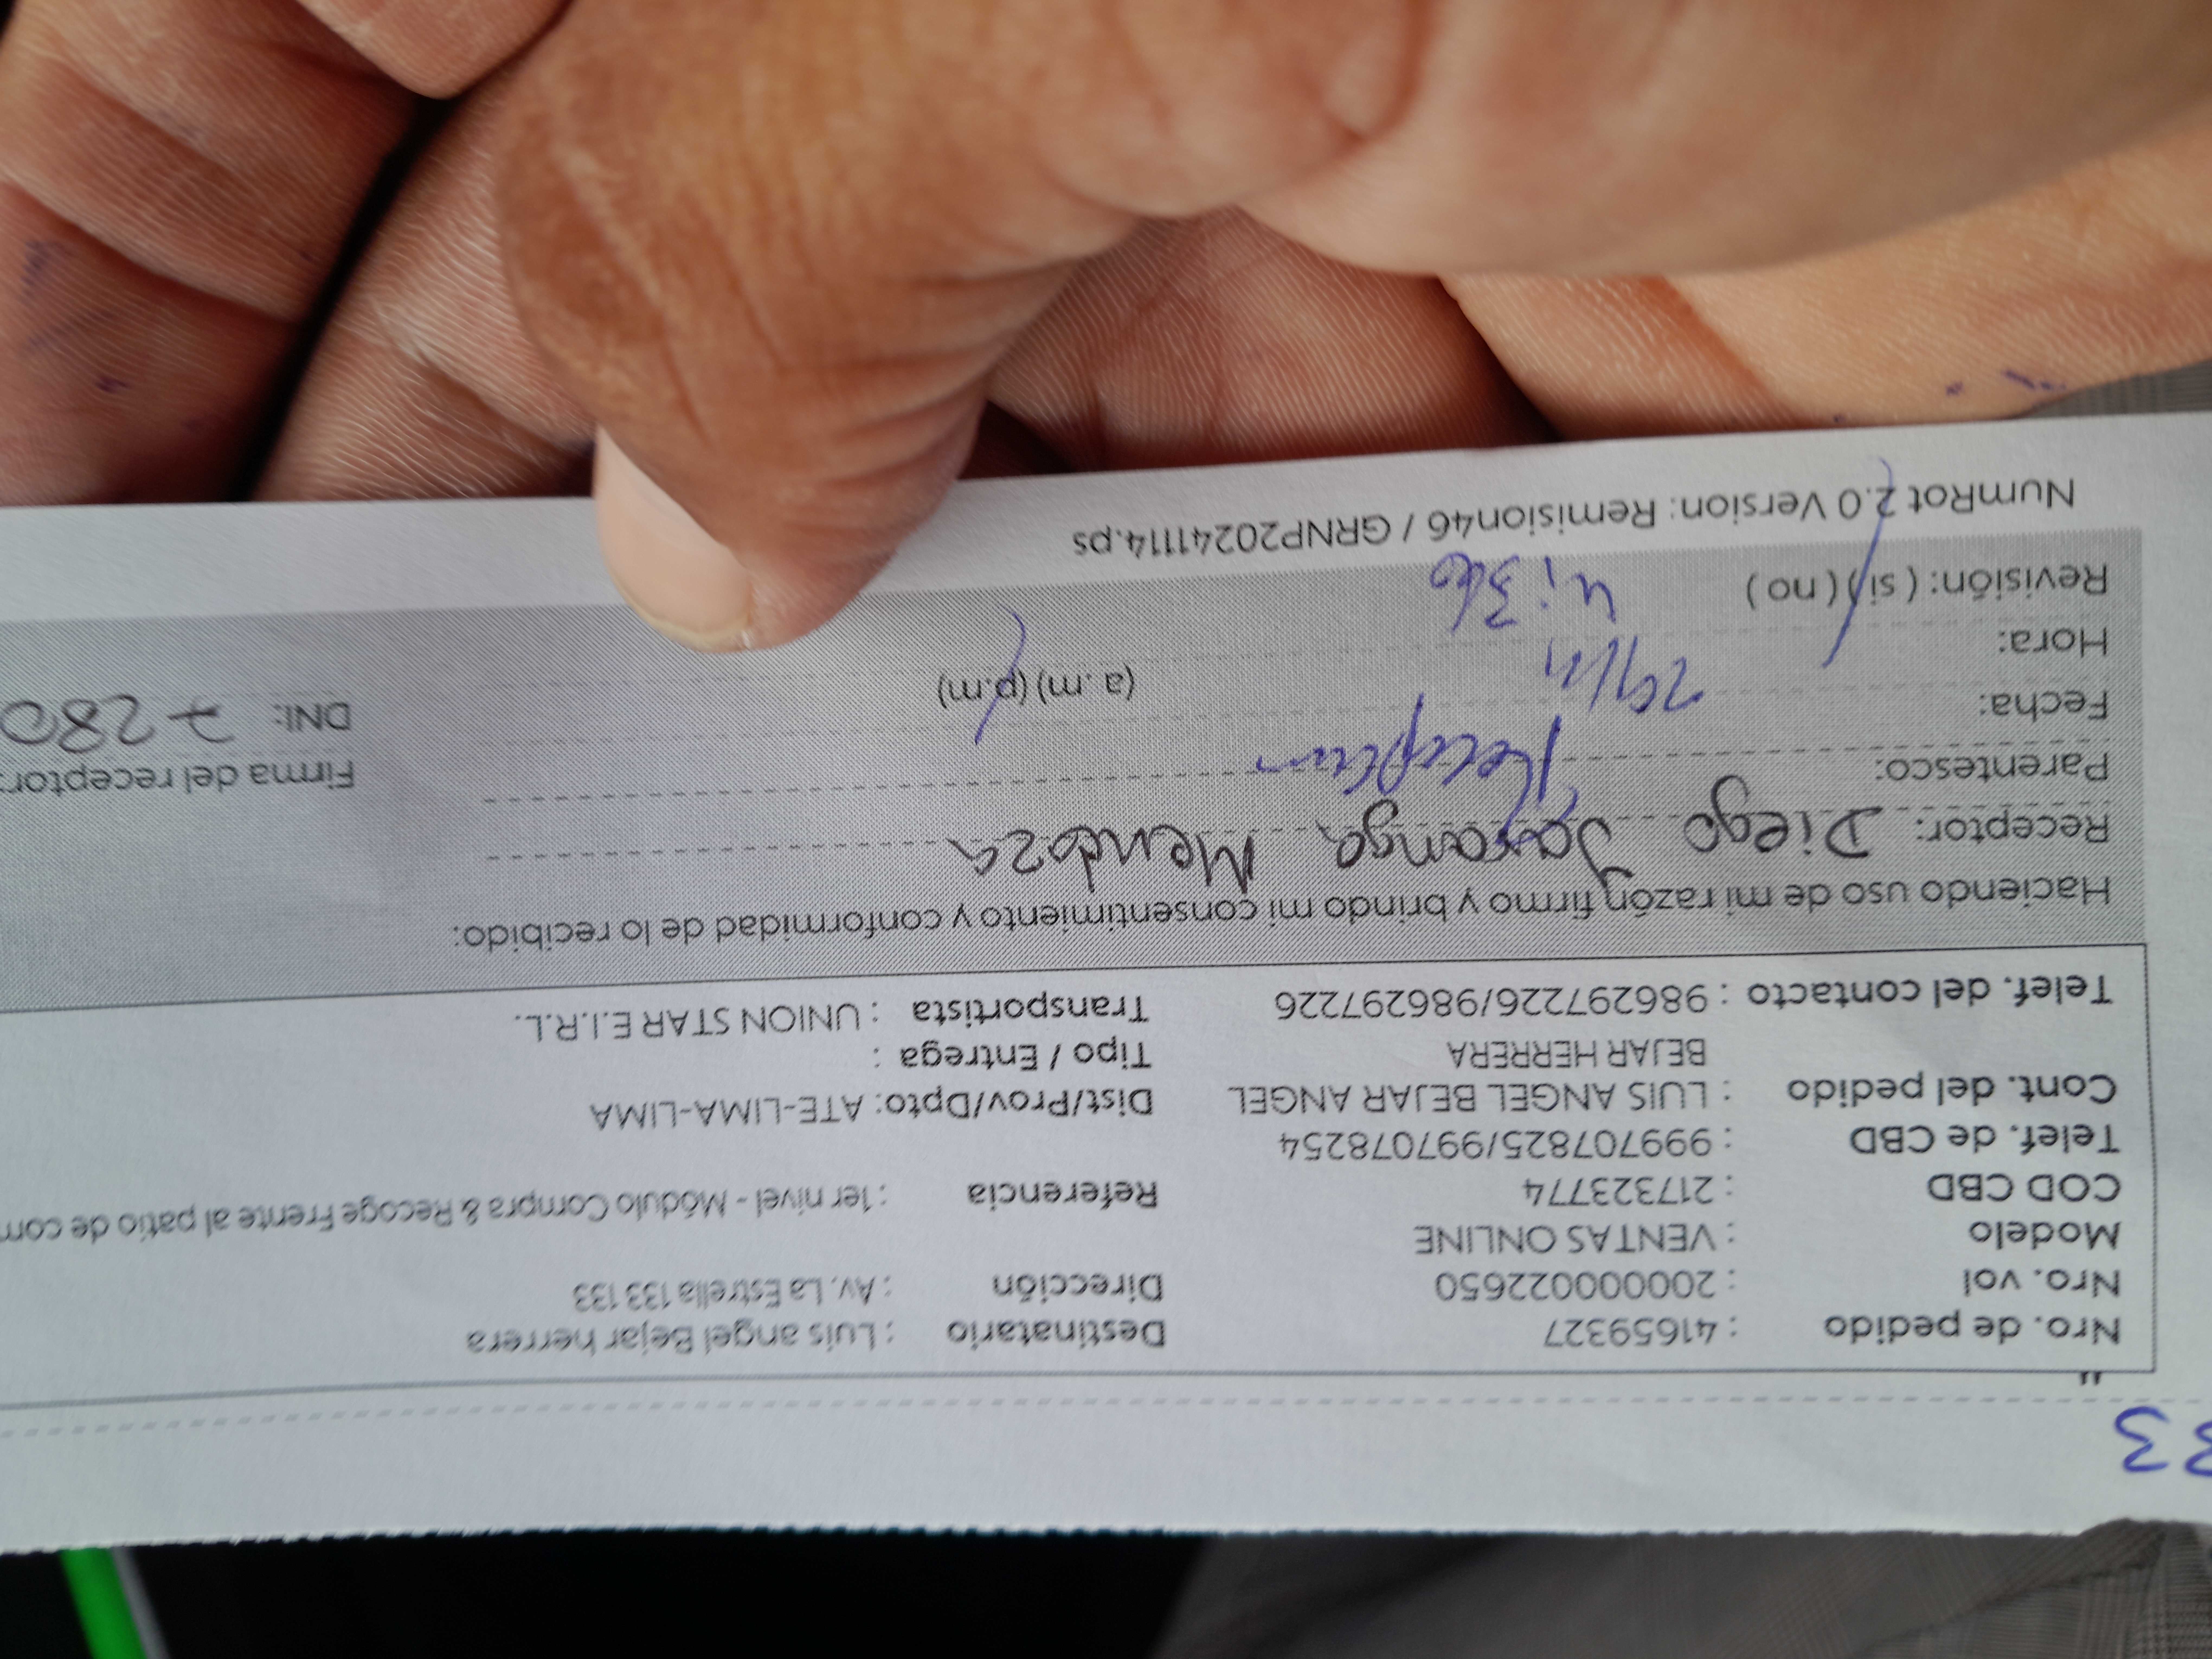 33
"
Nro. de pedido : 41659327 Destinatario : Luis angel Bejar herrera
Nro. vol : 200000022650 Dirección : Av. La Estrella 133 133
Modelo : VENTAS ONLINE
COD CBD : 217323774 Referencia : 1er nivel - Módulo Compra & Recoge Frente al patio de com
Telef. de CBD : 999707825/997078254
Cont. del pedido : LUIS ANGEL BEJAR ANGEL Dist/Prov/Dpto: ATE-LIMA-LIMA
BEJAR HERRERA Tipo / Entrega :
Telef. del contacto : 986297226/986297226 Transportista : UNION STAR E.I.R.L.
Haciendo uso de mi razón firmo y brindo mi consentimiento y conformidad de lo recibido:
Receptor: Diego Mendoza
Parentesco: Firma del receptor:
Fecha: (a.m) (p.m) DNI: 7280
Hora:
Revisión: (si) (no)
NumRot 2.0 Version: Remision46 / GRNP20241114.ps